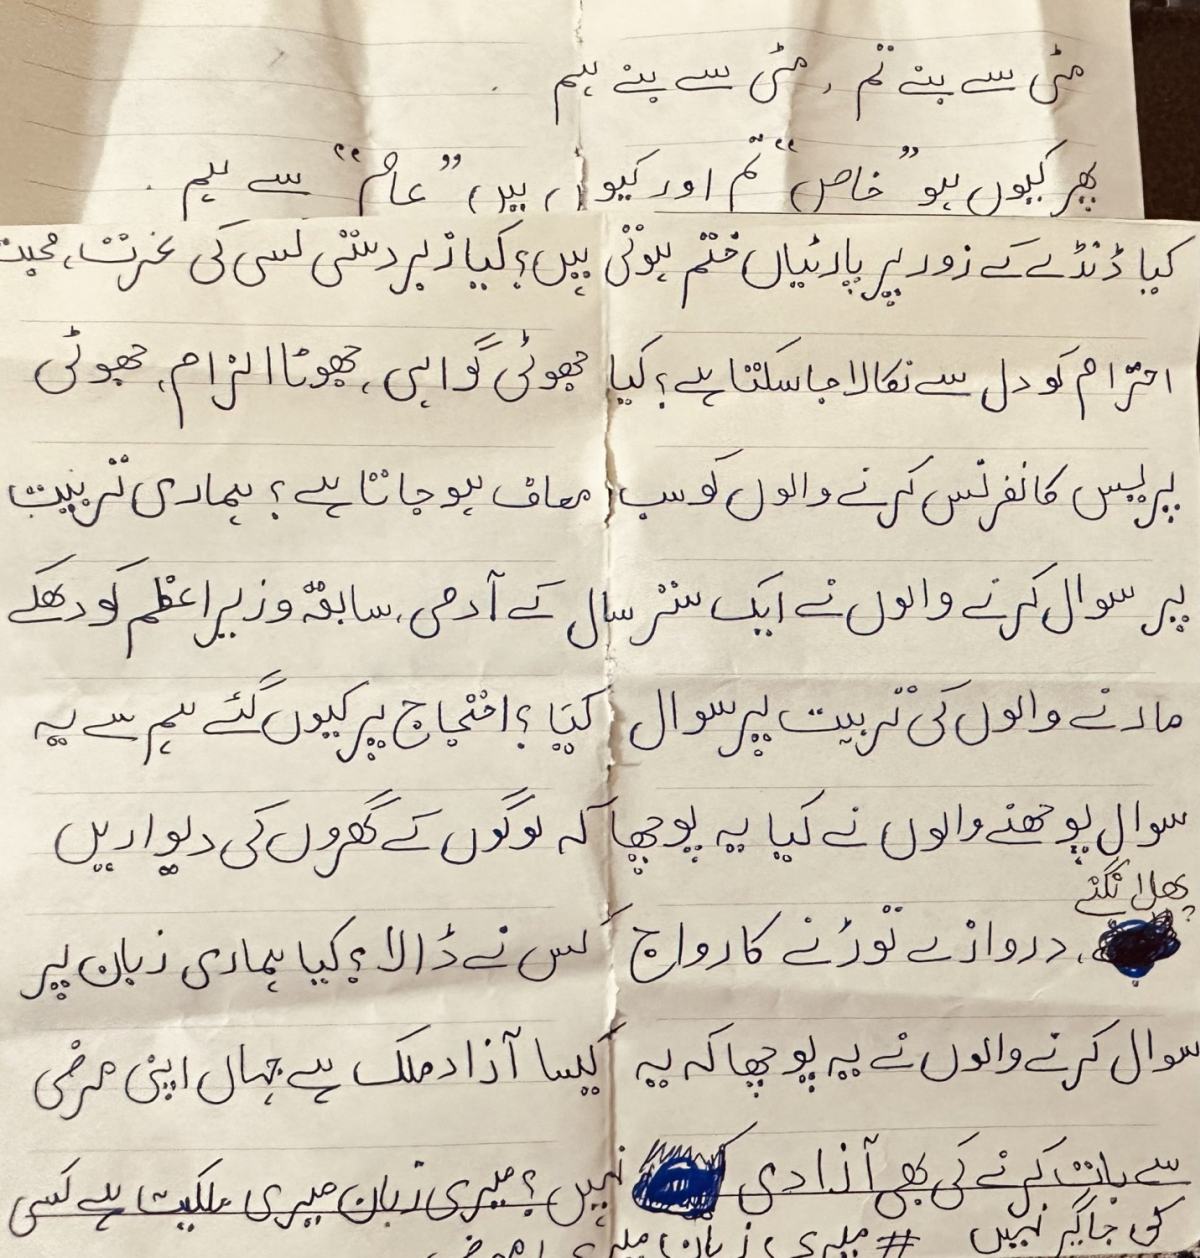 مٹی سے بنے تم ، مٹی سے بنے ہم
پھر کیوں ہو "خاص" تم اور کیوں ہیں "عام" سے ہم .
کیا ڈنڈے کے زور پر پارٹیاں ختم ہوتی ہیں؟ کیا زبردستی کسی کی عزت، محبت
احترام کو دل سے نکالا جا سکتا ہے؟ کیا جھوٹی گواہی، جھوٹا الزام، جھوٹی
پریس کانفرنس کرنے والوں کو سب معاف ہو جاتا ہے؟ ہماری تربیت
پر سوال کرنے والوں نے ایک ستر سال کے آدمی، سابقہ وزیراعظم کو دھکے
مارنے والوں کی تربیت پر سوال کیا؟ احتجاج پر کیوں گئے ہم سے یہ
سوال پوچھنے والوں نے کیا یہ پوچھا کہ لوگوں کے گھروں کی دیواریں
پھلانگنے
، دروازے توڑنے کا رواج کس نے ڈالا؟ کیا ہماری زبان پر
سوال کرنے والوں نے یہ پوچھا کہ یہ کیسا آزاد ملک ہے جہاں اپنی مرضی
سے بات کرنے کی بھی آزادی نہیں؟ میری زبان میری ملکیت ہے کسی
کی جاگیر نہیں # میری زبان میری مرضی